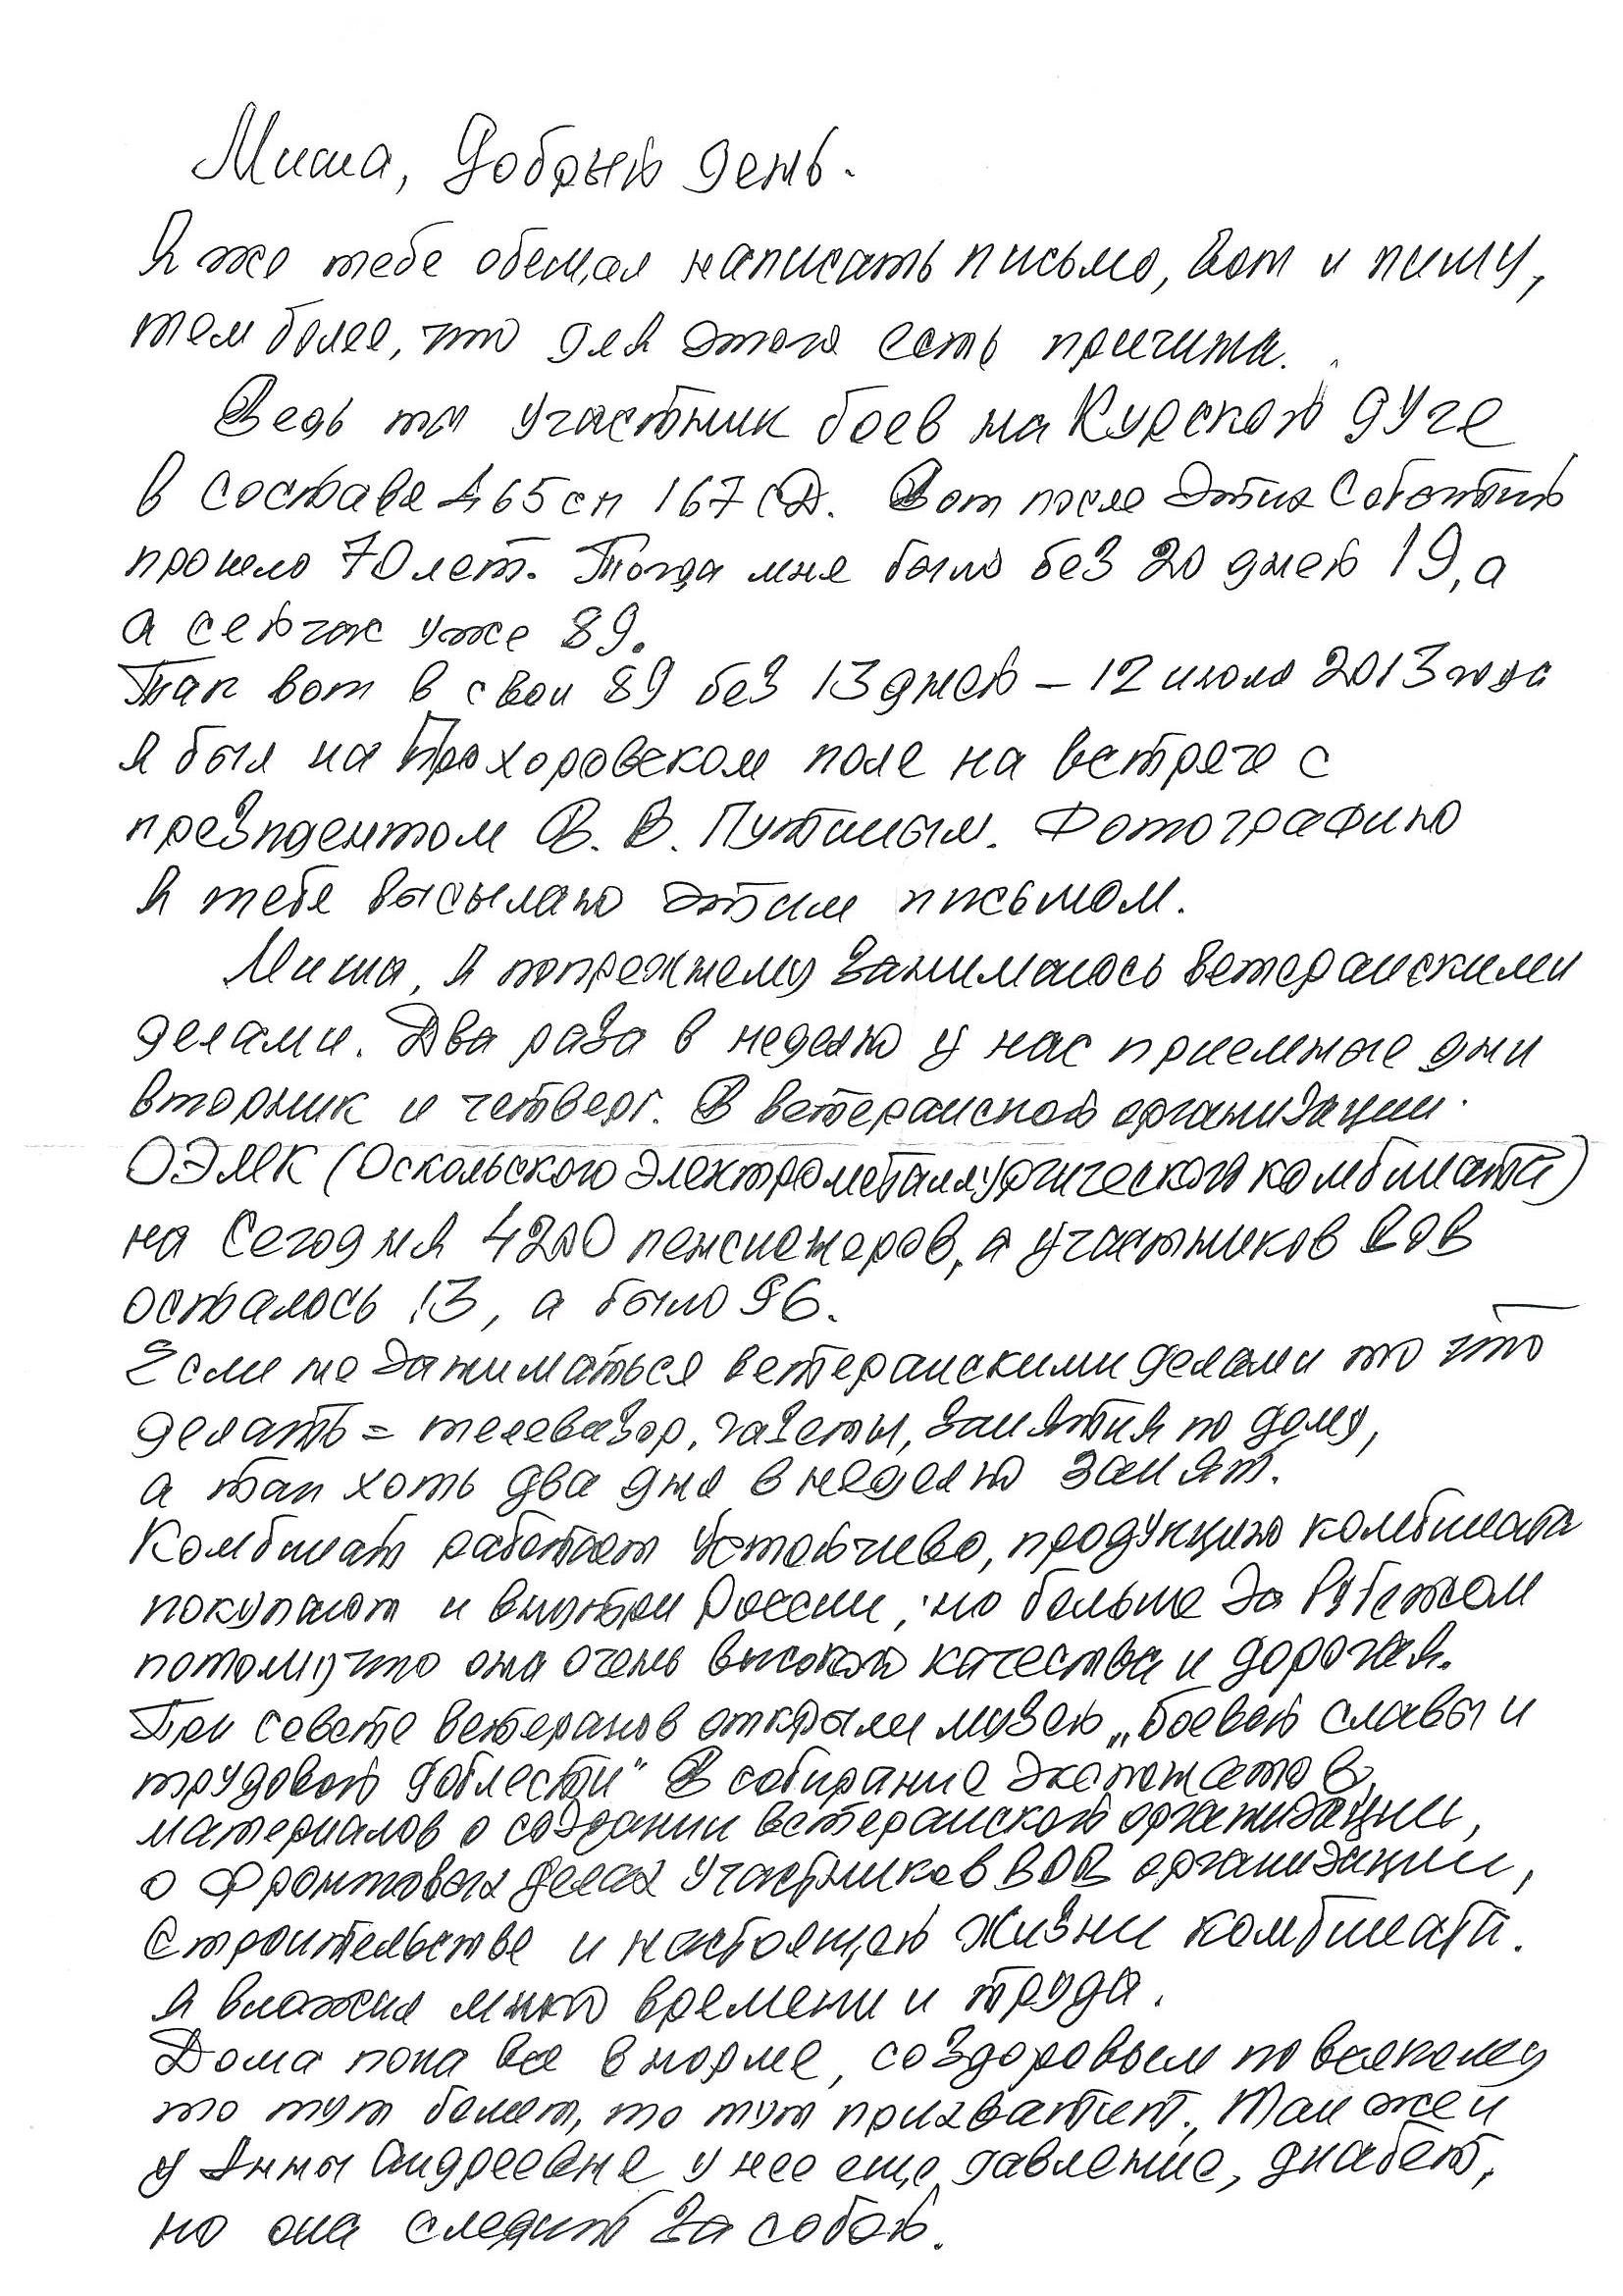 Миша, Добрый день.
Я же тебе обещал написать письмо, вот и пишу,
тем более, что для этого есть причина.
Ведь ты участник боев на Курской дуге
в составе 465 сп 167 СД. Вот после этих событий
прошло 70 лет. Тогда мне было без 20 дней 19, а
а сейчас уже 89.
Так вот в свои 89 без 13 дней – 12 июля 2013 года
я был на Прохоровском поле на встрече с
президентом В. В. Путиным. Фотографию
я тебе высылаю этим письмом.
Миша, я попрежнему занимаюсь ветеранскими
делами. Два раза в неделю у нас приемные дни
вторник и четверг. В ветеранской организации
ОЭМК (Оскольского электрометаллургического комбината)
на сегодня 4200 пенсионеров, а участников ВОВ
осталось 13, а было 96.
Если не заниматься ветеранскими делами то что
делать = телевизор, газеты, занятия по дому,
а так хоть два дня в неделю занят.
Комбинат работает устойчиво, продукцию комбината
покупают и внутри России, но больше за рубежом
потому что она очень высокого качества и дорогая.
При совете ветеранов открыли музей „боевой славы и
трудовой доблести" В собирание экспонатов,
материалов о создании ветеранской организации,
о фронтовых делах участников ВОВ организации,
строительстве и настоящей жизни комбината.
я вложил много времени и труда.
Дома пока все в норме, со здоровьем по всякому
то тут болит, то тут прихватит. Так же и
у Анны Андреевне у нее еще давление, диабет,
но она следит за собой.